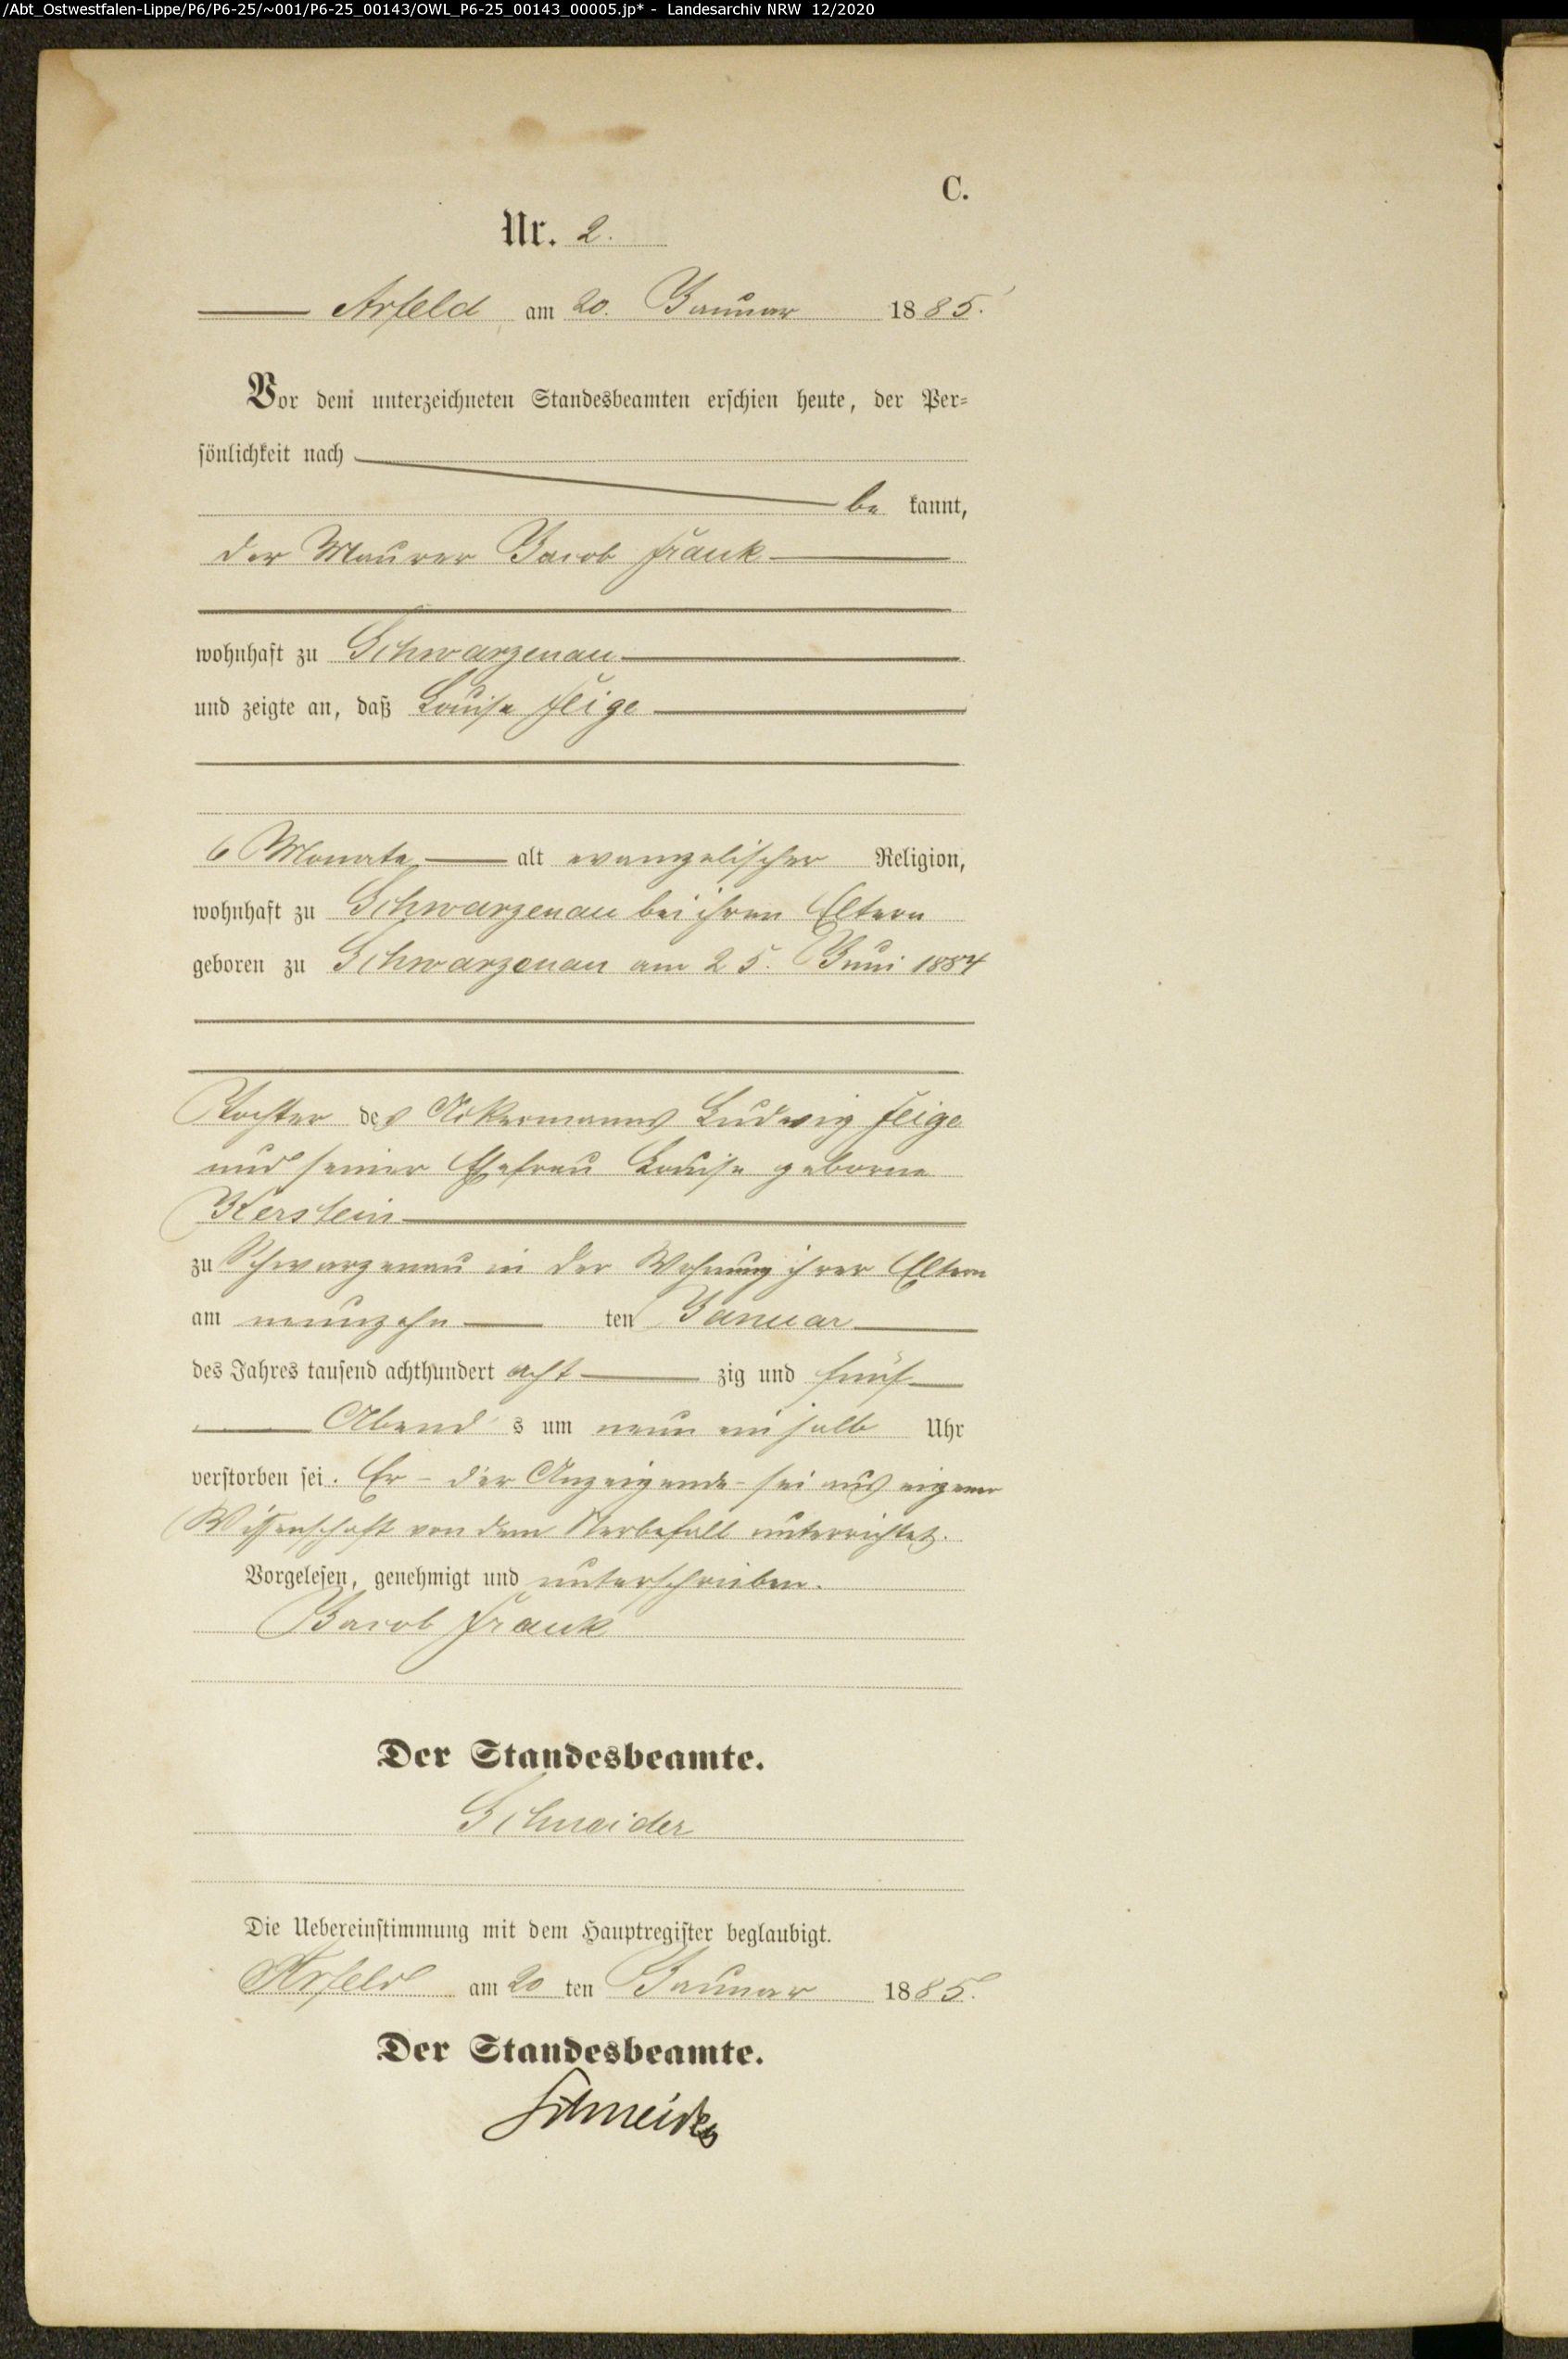 /Abt_Ostwestfalen-Lippe/P6/P6-25/~001/P6-25_00143/OWL_P6-25_00143_00005.jp* - Landesarchiv NRW 12/2020
C.
Nr. 2.
Arfeld am 20. Januar 1885.
Vor dem unterzeichneten Standesbeamten erschien heute, der Per-
sönlichkeit nach
be kannt,
der Maurer Jacob Frank
wohnhaft zu Schwarzenau
und zeigte an, daß Louise Feige
6 Monate alt evangelischer Religion,
wohnhaft zu Schwarzenau bei ihren Eltern
geboren zu Schwarzenau am 25. Juni 1884
Tochter des Ackermanns Ludwig Feige
und seiner Ehefrau Louise geborne
Kerstein
zu Schwarzenau in der Wohnung ihrer Eltern
am neunzehn ten Januar
des Jahres tausend achthundert acht zig und fünf
Abend s um neun ein halb Uhr
verstorben sei. Er - der Anzeigende - sei aus eigener
Wissenschaft von dem Sterbefall unterrichtet.
Vorgelesen, genehmigt und unterschrieben.
Jacob Frank
Der Standesbeamte.
Schneider
Die Uebereinstimmung mit dem Hauptregister beglaubigt.
Arfeld am 20 ten Januar 1885.
Der Standesbeamte.
Schneider